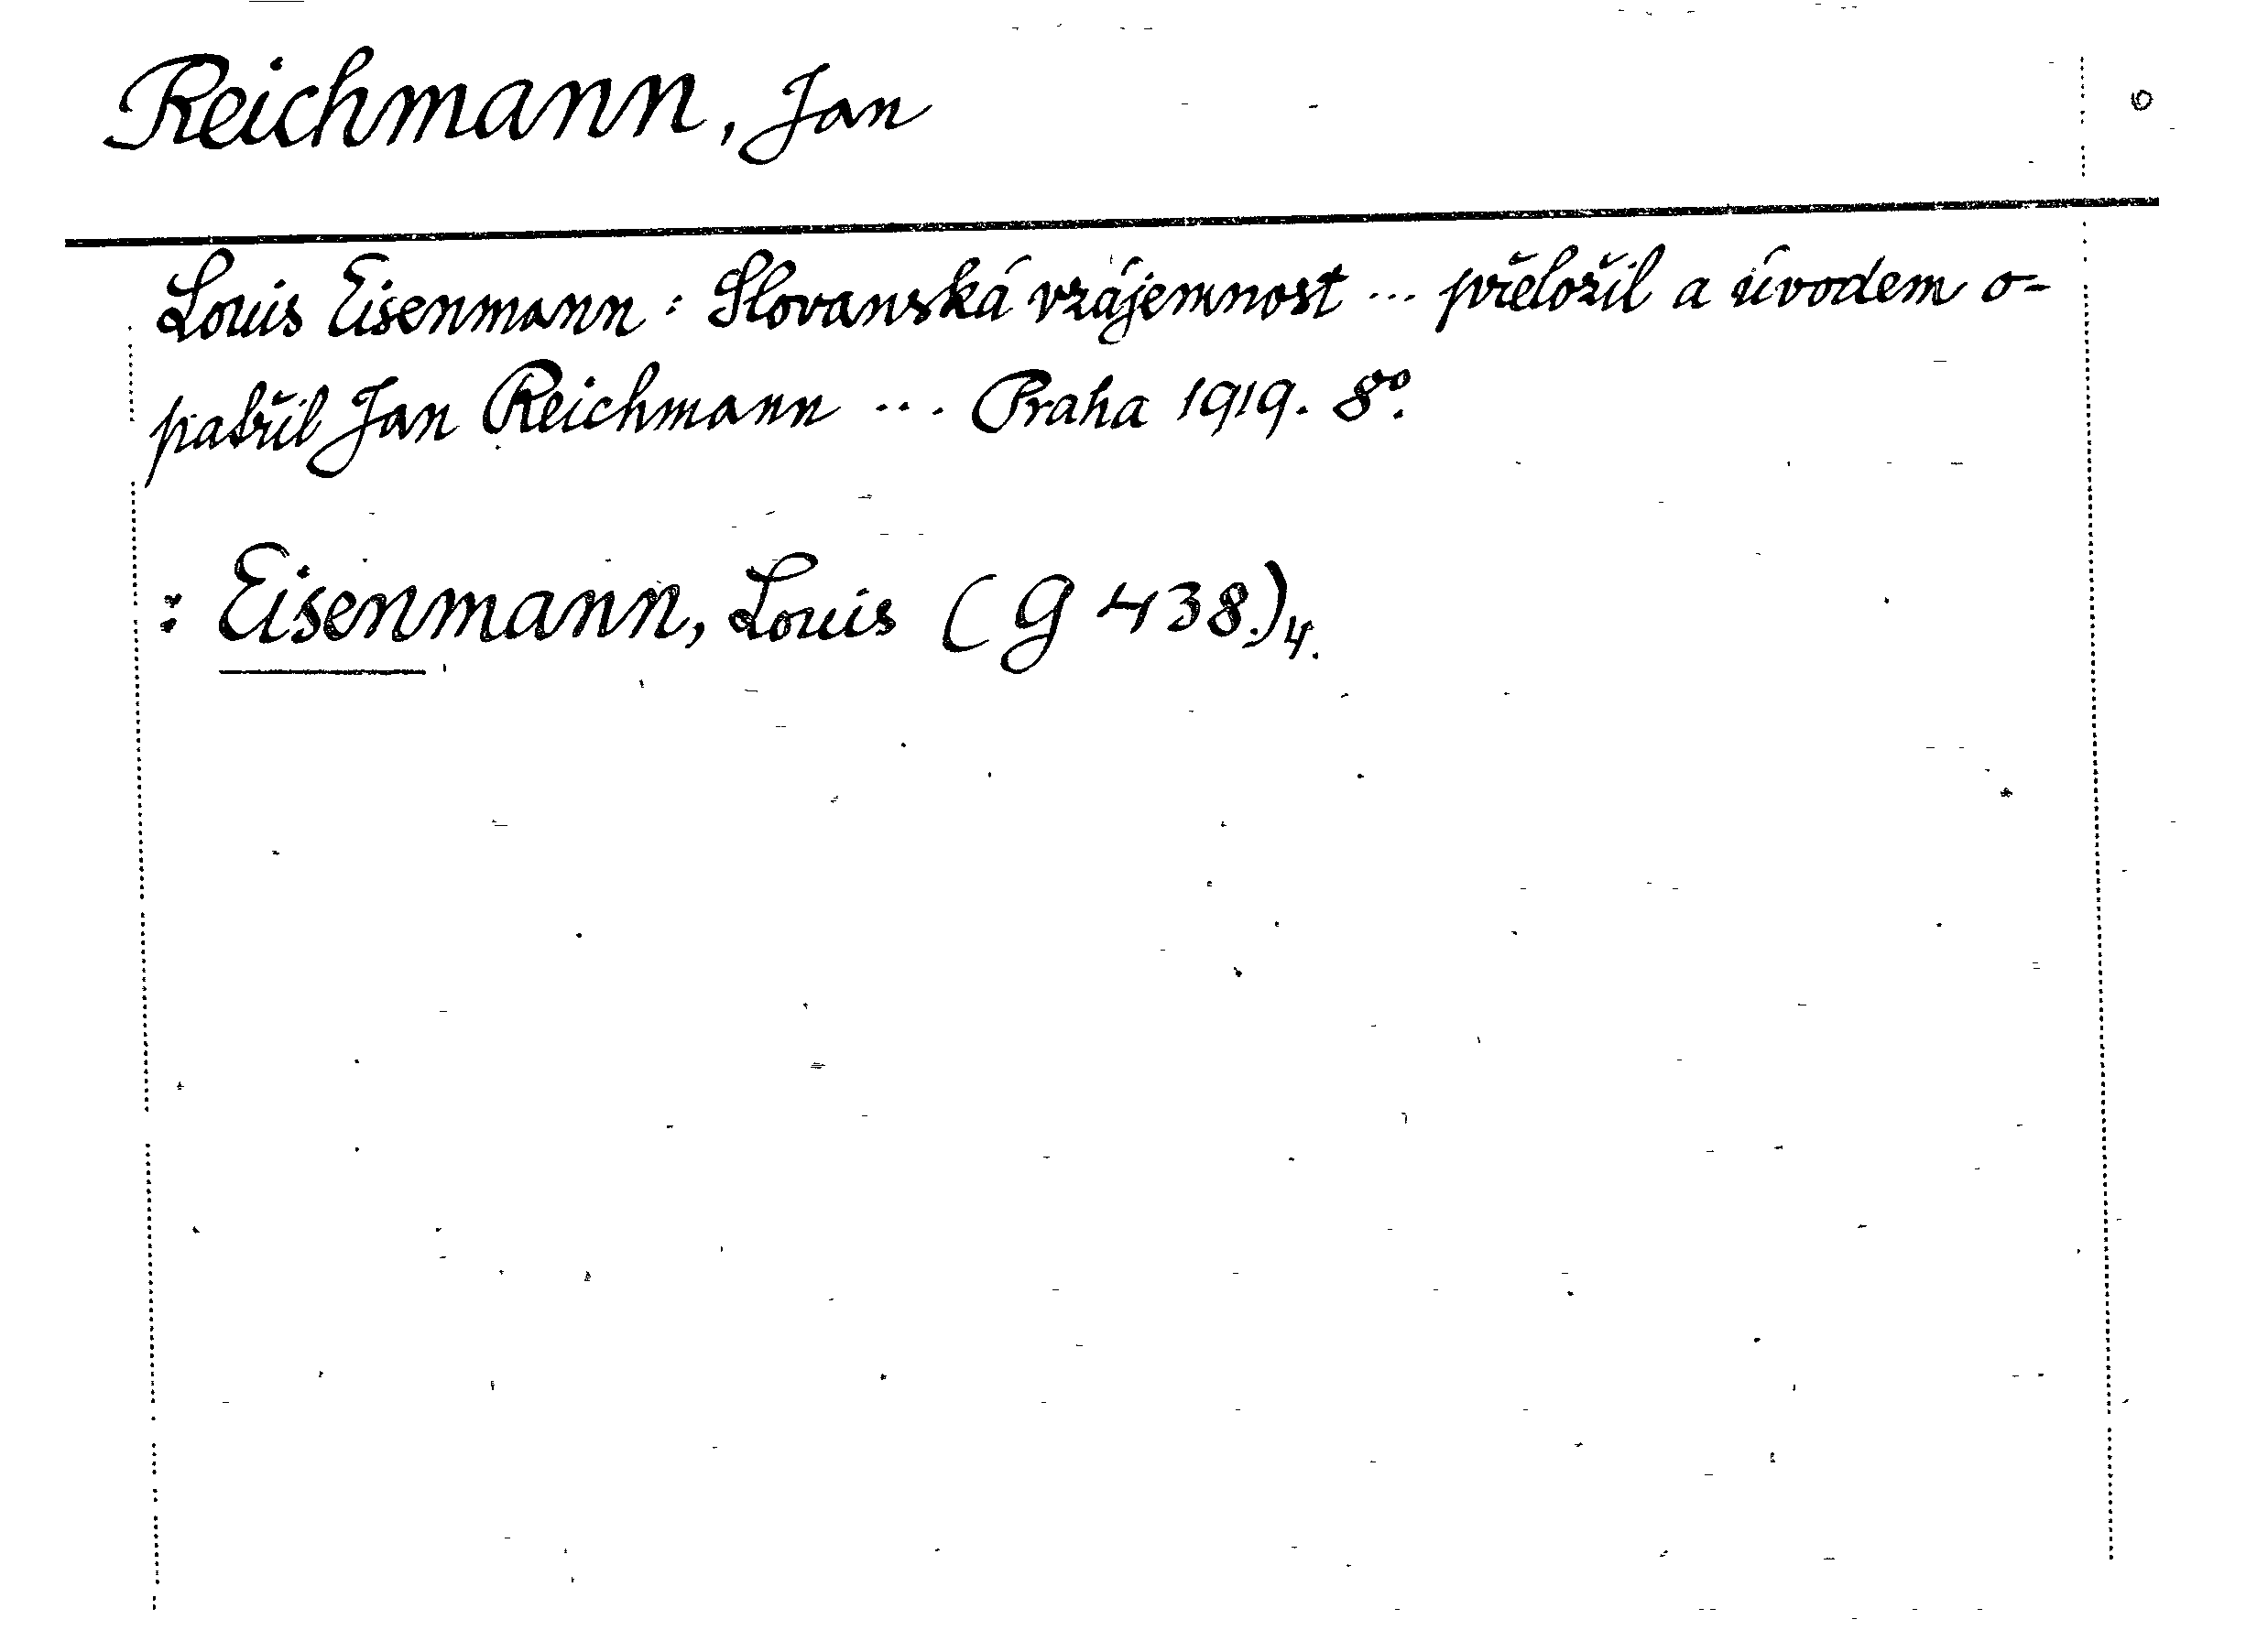 Reichmann, Jan
Louis Eisenmann: Slovanská vzájemnost ... přeložil a úvodem o-
patřil Jan Reichmann ... Praha 1919. 8°.
: Eisenmann, Louis (G 438.)4.